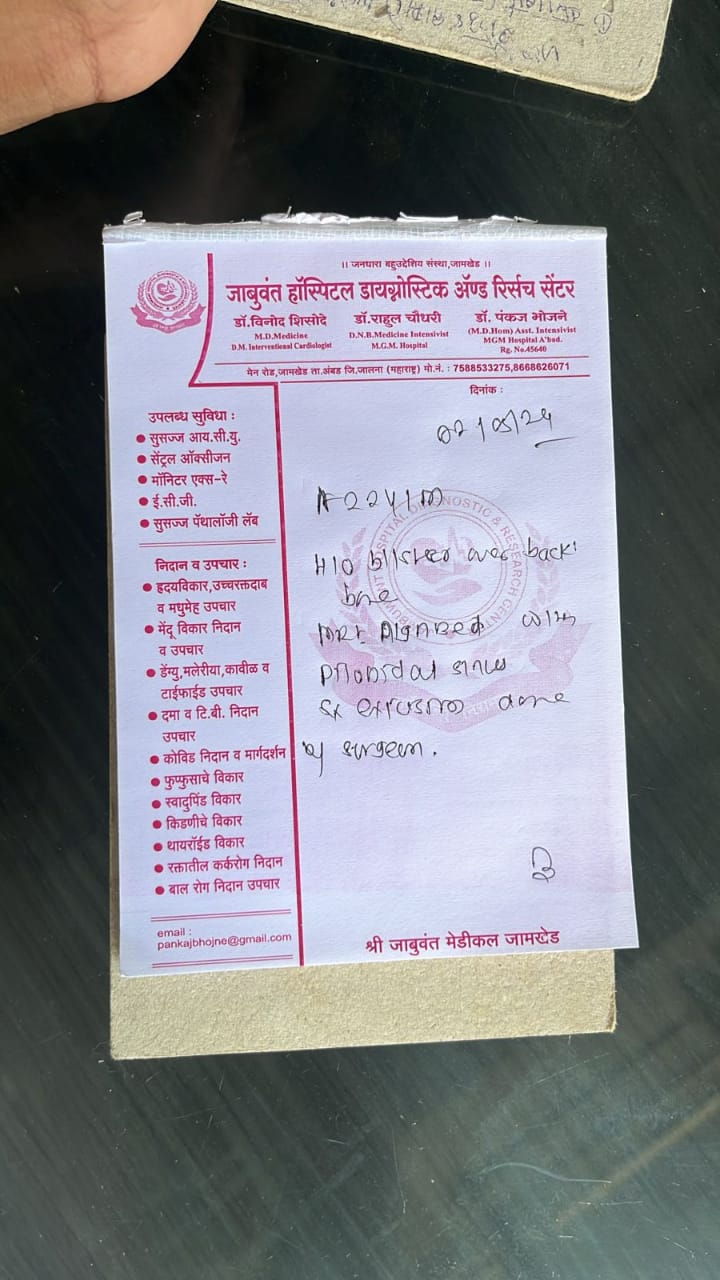 ।। जनधारा बहुउद्देशिय संस्था,जामखेड ।।
जाबुवंत हॉस्पिटल डायग्नोस्टिक ॲण्ड रिर्सच सेंटर
डॉ.विनोद शिसोदे
M.D.Medicine
D.M. Interventional Cardiologist
डॉ.राहुल चौधरी
D.N.B.Medicine Intensivist
M.G.M. Hospital
डॉ. पंकज भोजने
(M.D.Hom) Asst. Intensivist
MGM Hospital A'bad.
Rg. No.45640
मेन रोड,जामखेड ता.अंबड जि.जालना (महाराष्ट्र) मो.नं. : 7588533275,8668626071
दिनांक :
उपलब्ध सुविधा :
सुसज्ज आय.सी.यु.
सेंट्रल ऑक्सीजन
मॉनिटर एक्स-रे
ई.सी.जी.
सुसज्ज पॅथालॉजी लॅब
निदान व उपचार :
ह्रदयविकार,उच्चरक्तदाब
व मधुमेह उपचार
मेंदू विकार निदान
व उपचार
डेंग्यु,मलेरीया,कावीळ व
टाईफाईड उपचार
दमा व टि.बी. निदान
उपचार
कोविड निदान व मार्गदर्शन
फुप्फुसाचे विकार
स्वादुपिंड विकार
किडणीचे विकार
थायरॉईड विकार
रक्तातील कर्करोग निदान
बाल रोग निदान उपचार
email :
pankajbhojne@gmail.com
H/O blister over back
done
by surgeon.
श्री जाबुवंत मेडीकल जामखेड